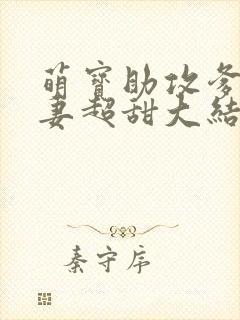 萌宝助攻爹
妻超甜大结
秦守序